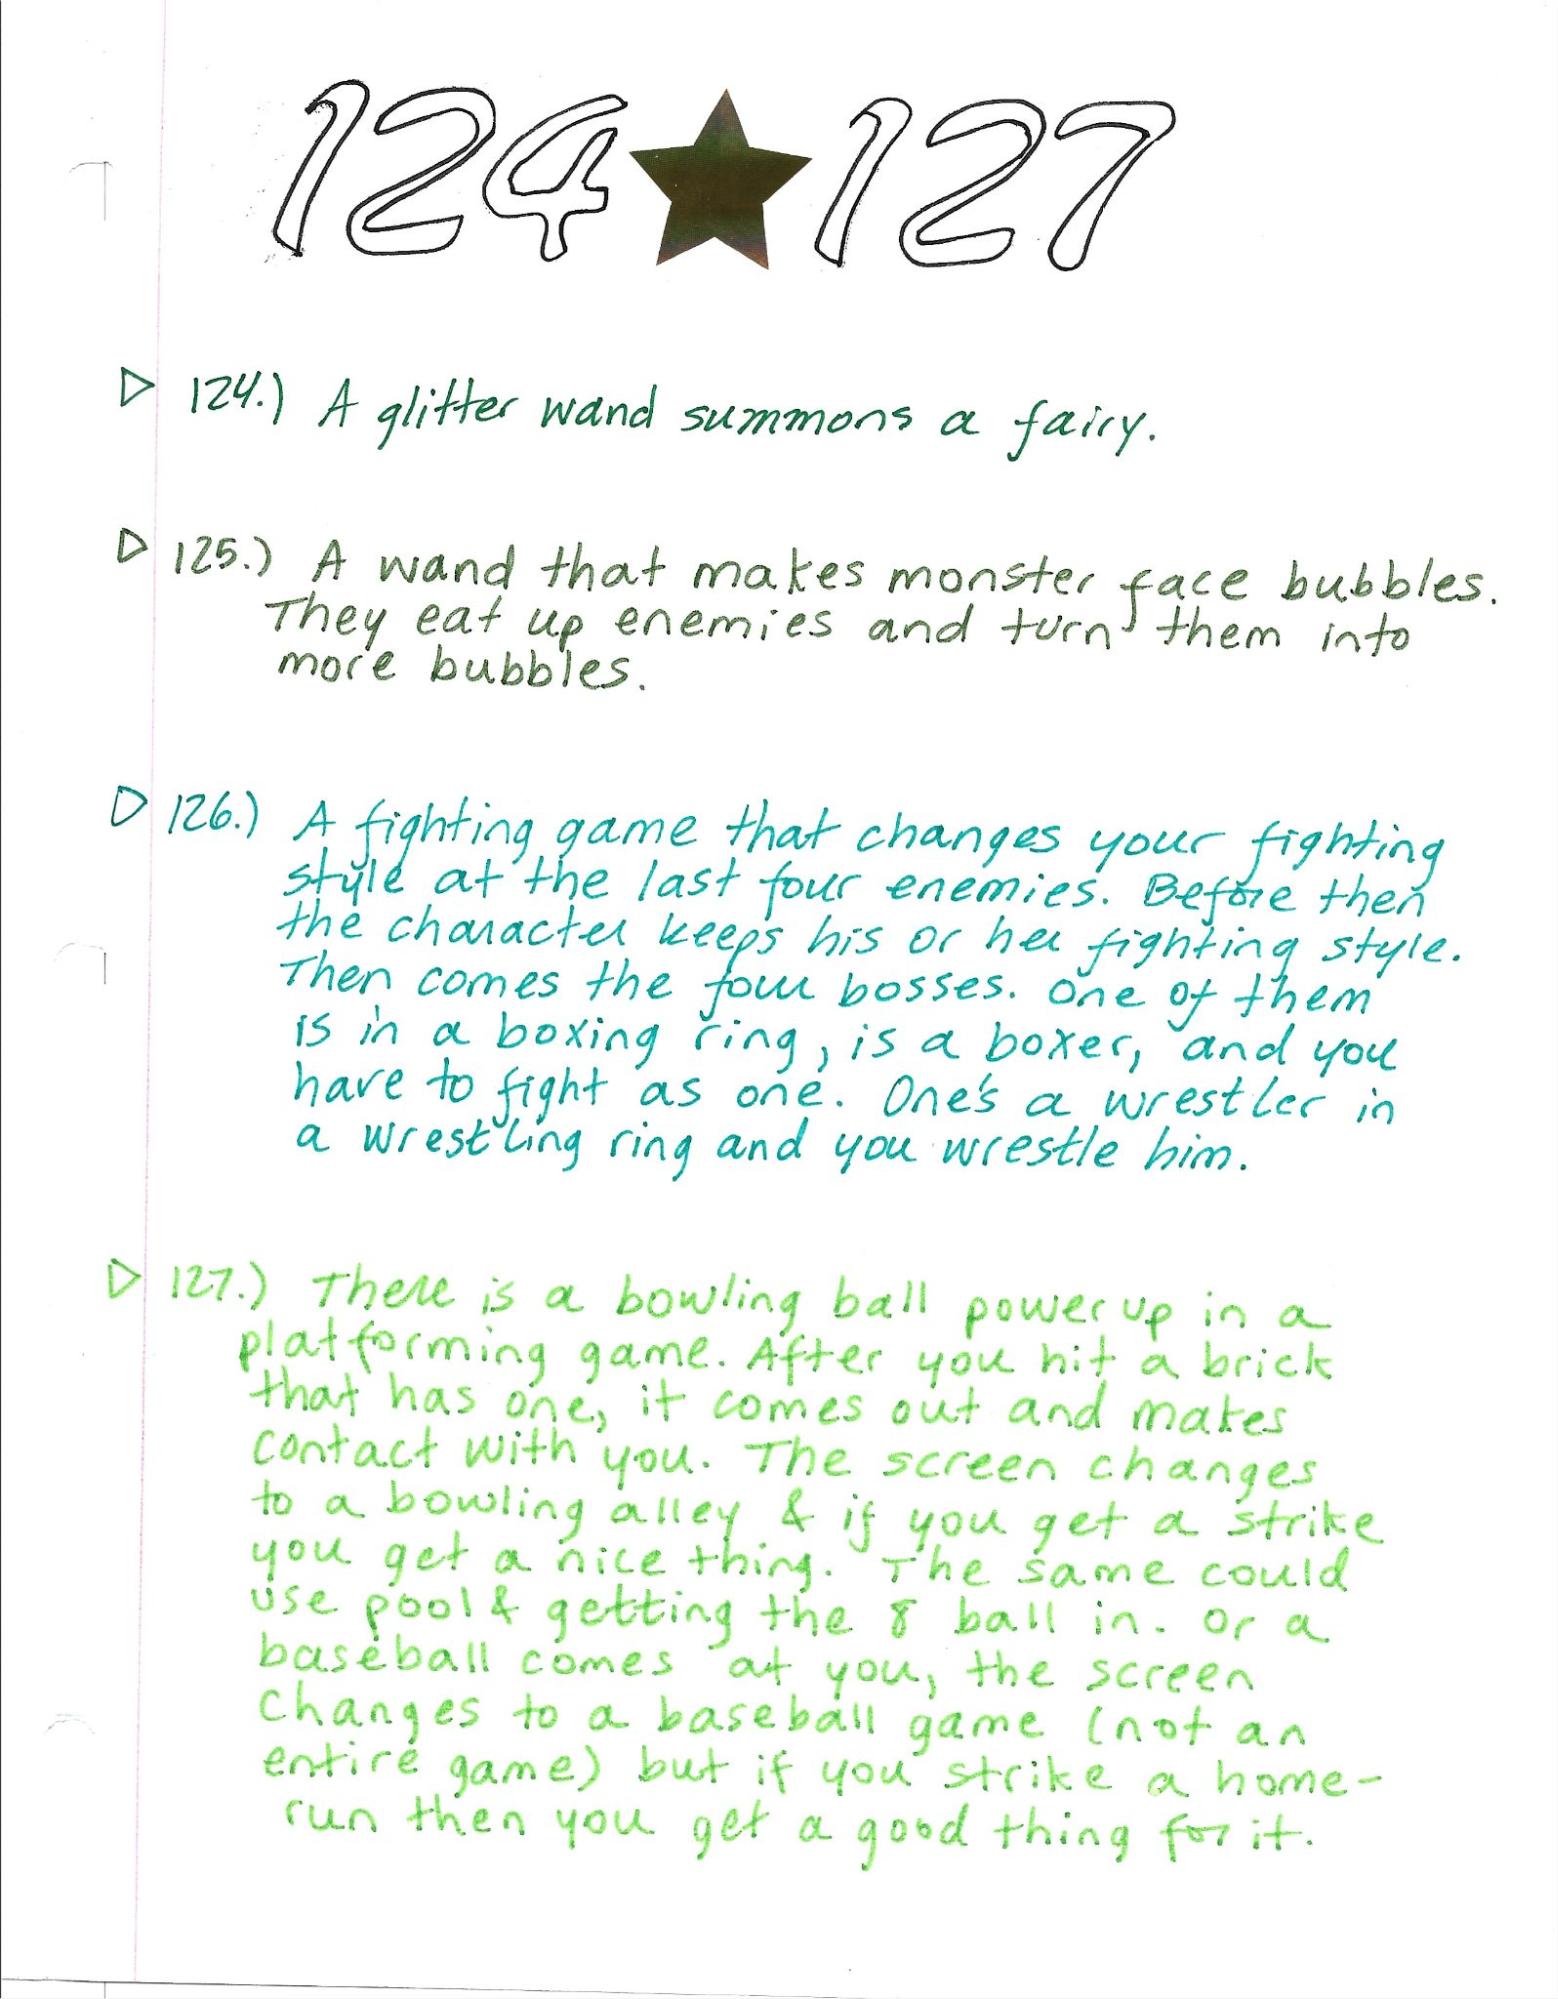 124 ★ 127
▷ 124.) A glitter wand summons a fairy.
▷ 125.) A wand that makes monster face bubbles.
They eat up enemies and turn them into
more bubbles.
▷ 126.) A fighting game that changes your fighting
style at the last four enemies. Before then
the character keeps his or her fighting style.
Then comes the four bosses. One of them
is in a boxing ring, is a boxer, and you
have to fight as one. One's a wrestler in
a wrestling ring and you wrestle him.
▷ 127.) There is a bowling ball power up in a
platforming game. After you hit a brick
that has one, it comes out and makes
contact with you. The screen changes
to a bowling alley & if you get a strike
you get a nice thing. The same could
use pool & getting the 8 ball in. Or a
baseball comes at you, the screen
changes to a baseball game (not an
entire game) but if you strike a home-
run then you get a good thing for it.